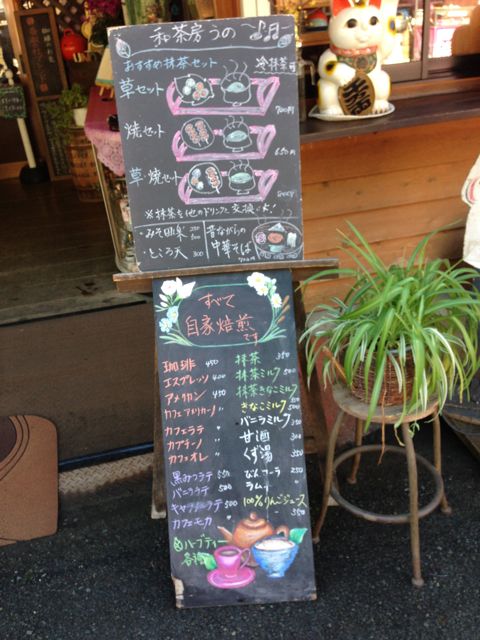 和茶房うの
おすすめ抹茶セット 冷抹茶可
草セット
700円
焼セット
650円
草焼セット
※抹茶を他のドリンクと交換
・みそ田楽
・ところ天 300
昔ながらの
中華そば
すべて
自家焙煎
です
珈琲 450
エスプレッソ 400
アメリカン 〃
カフェアメリカーノ 〃
カフェラテ 〃
カプチーノ 〃
カフェオレ 〃
黒みつラテ 550
バニララテ 500
キャラメルラテ 500
カフェモカ 〃
抹茶 350
抹茶ミルク
抹茶きなこミルク
きなこミルク
バニラミルク
甘酒 300
くず湯 350
びんコーラ 250
ラムネ 〃
100%りんごジュース
350
ハーブティー
各種